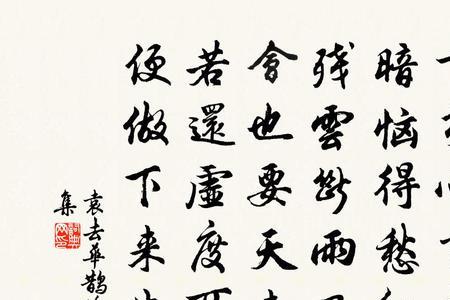 暗恼得愁
残雲断雨
會也要天
若還虚度
便做下来
袁去華鵲
集